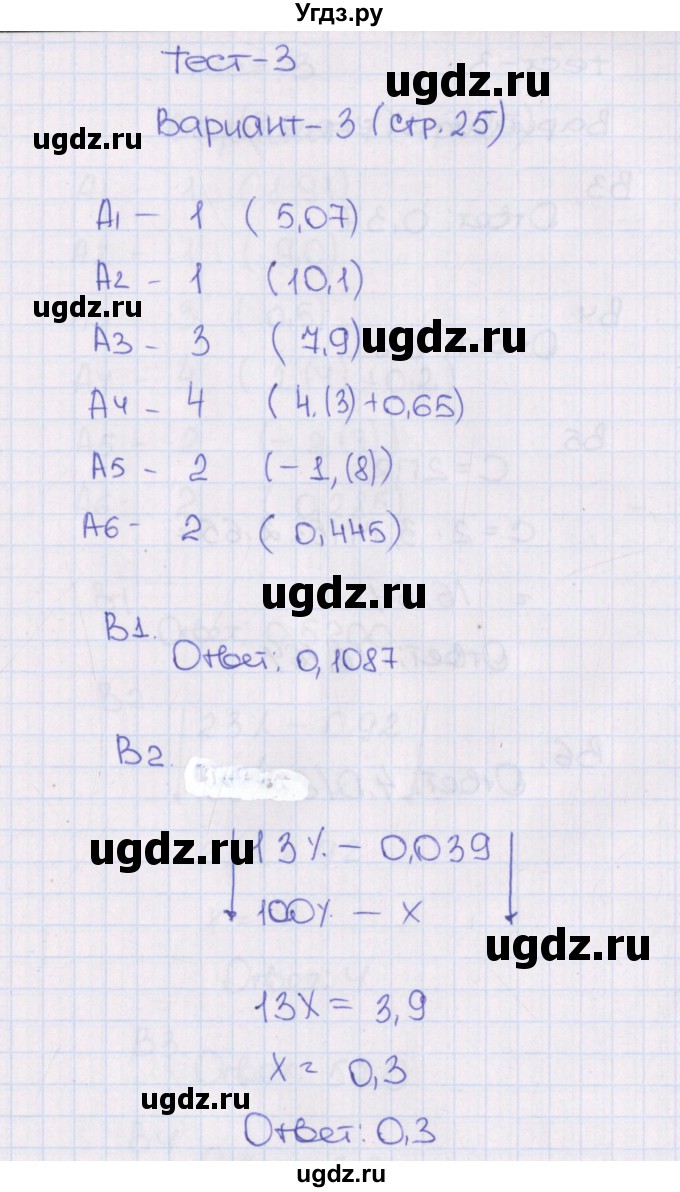 Угдз.ру
Тест-3
ugdz.ru
ugdz.ru
Вариант-3 (стр.25)
А1 - 1 (5,07)
А2 - 1 (10,1)
ugdz.ru
А3 - 3 (7,9)
ugdz.ru
А4 - 4 (4.(3)+0,65)
А5 - 2 (-1,(8))
А6- 2 (0,445)
ugdz.ru
В1.
Ответ: 0,1087
В2.
ugdz.ru
13% - 0,039
100% - х
ugdz.ru
13х = 3,9
х = 0,3
ugdz.ru
Ответ: 0,3
ugdz.ru